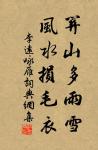 關山多雨雪
風水損毛衣
李遠詠雁詞典網集